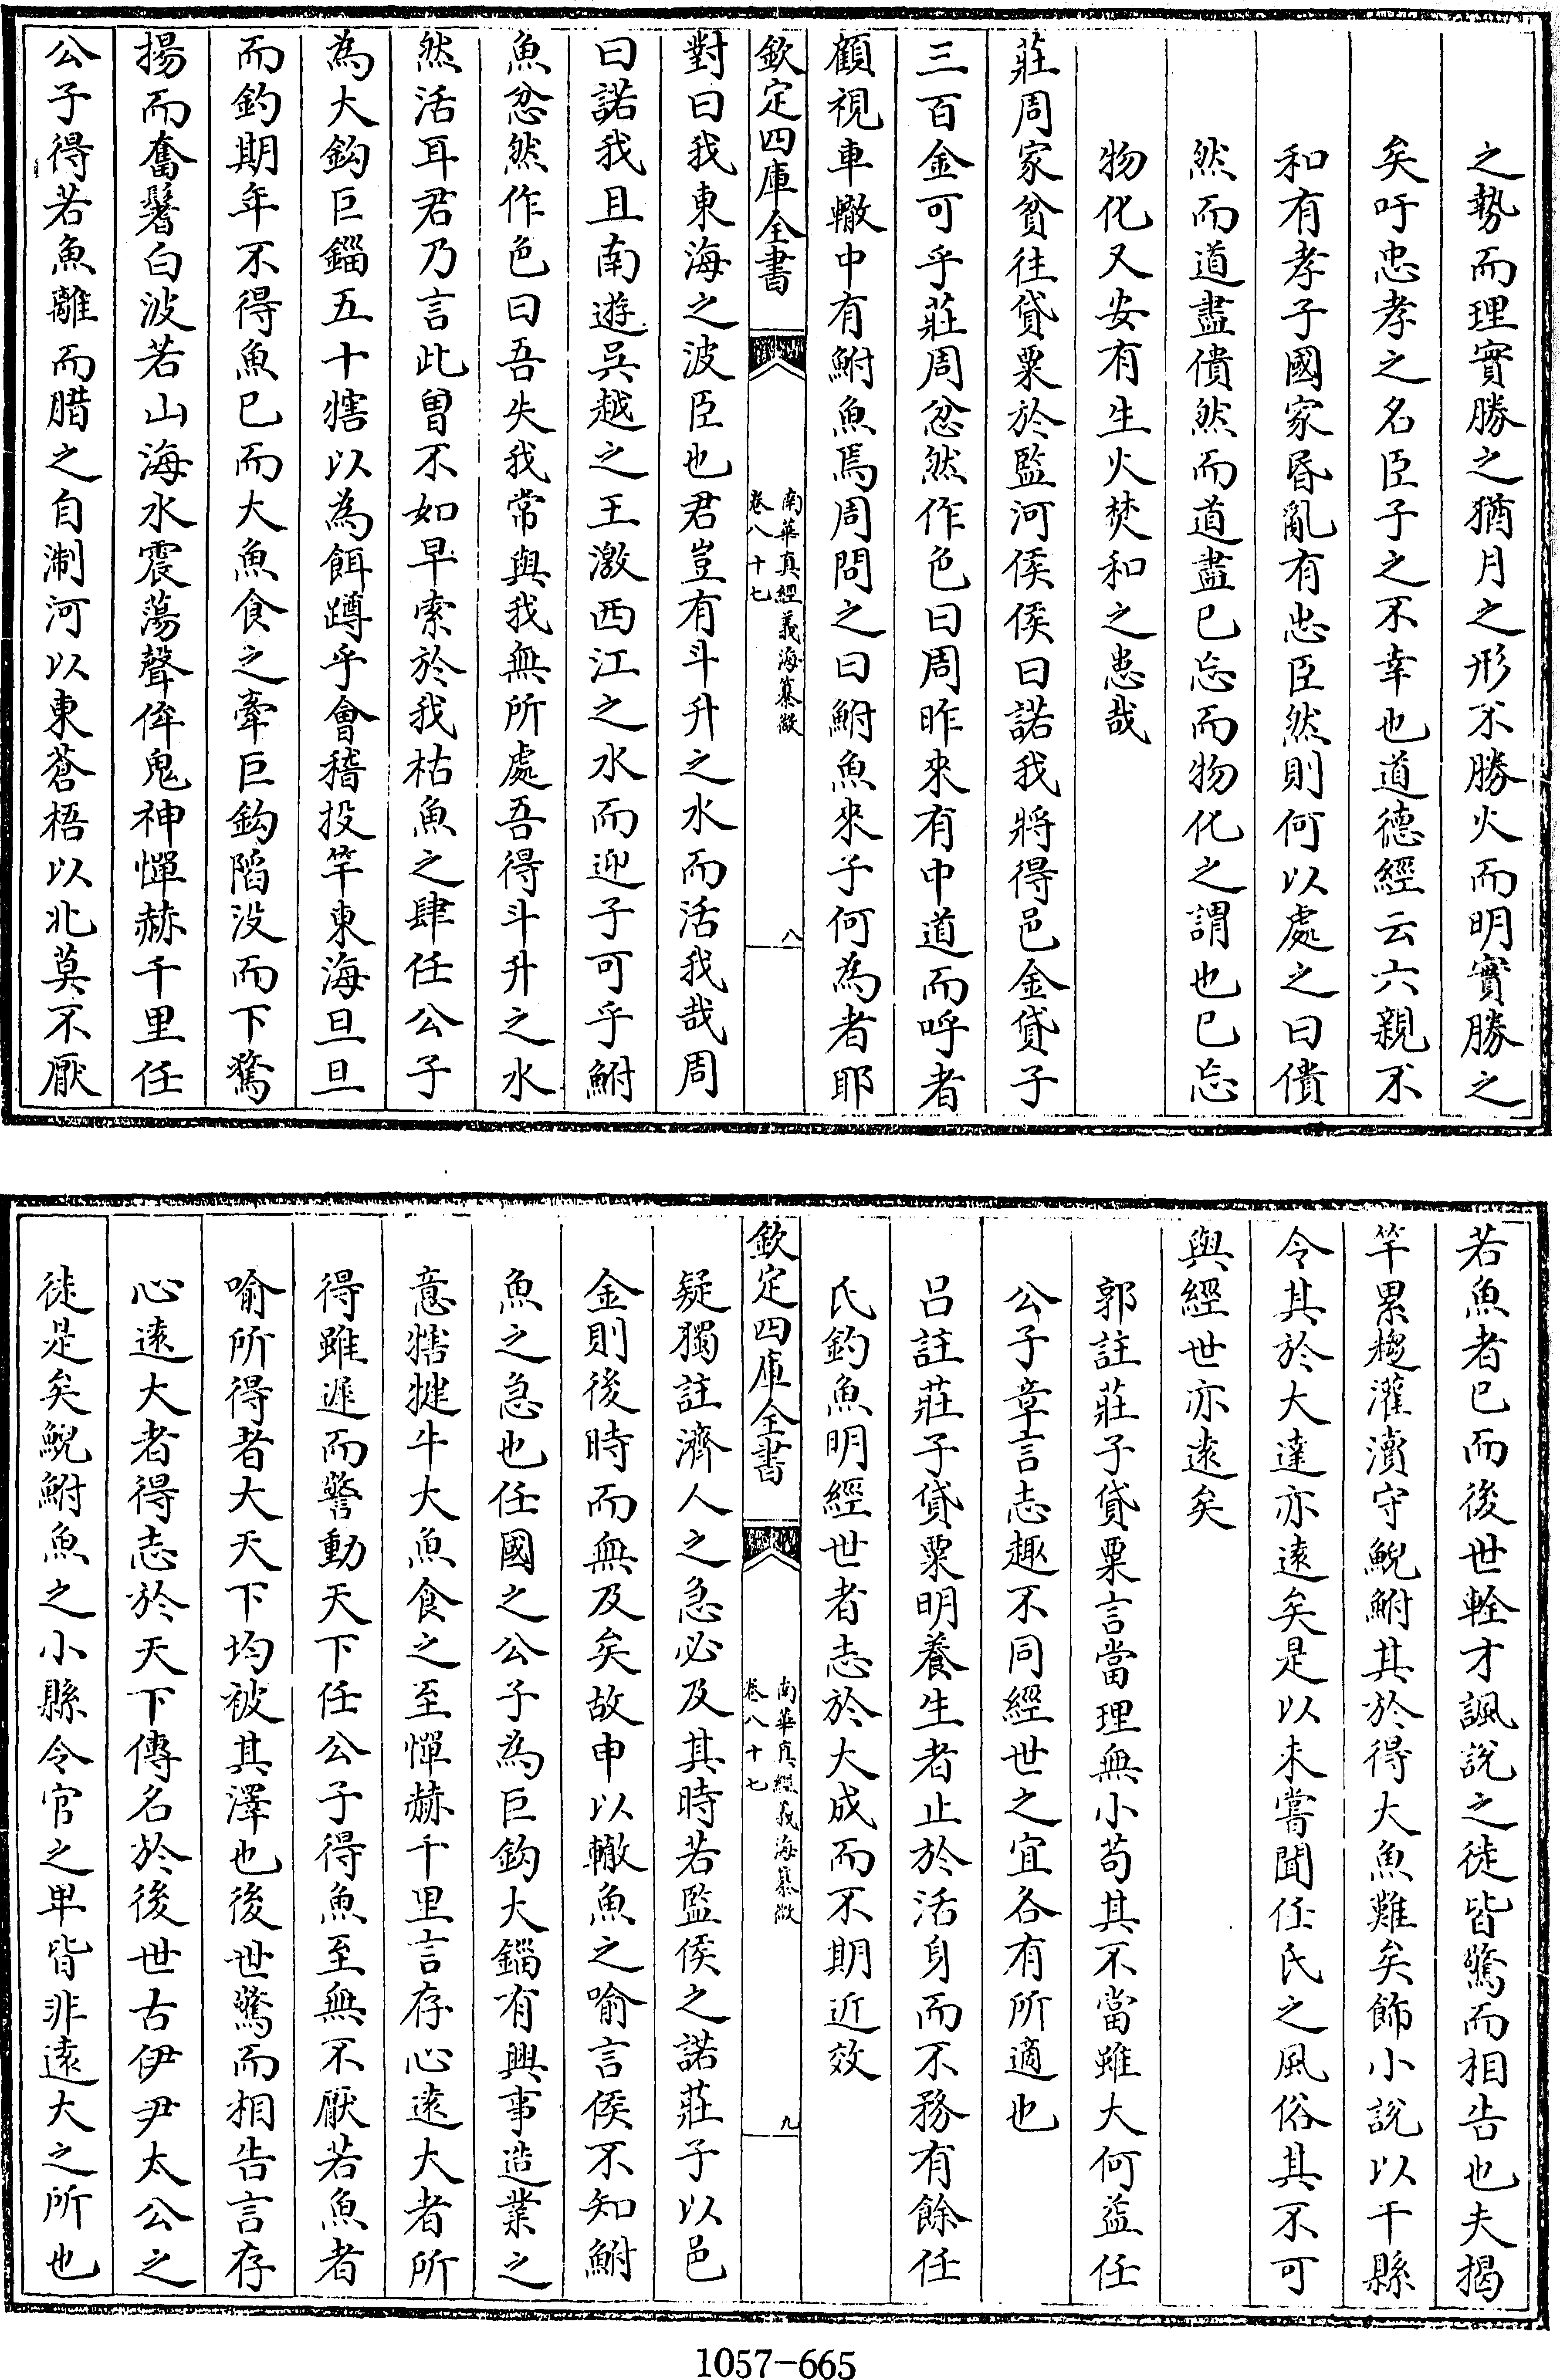 之勢而理實勝之猶月之形不勝火而明實勝之
矣吁忠孝之名臣子之不幸也道德經云六親不
和有孝子國家昏亂有忠臣然則何以處之曰僓
然而道盡僓然而道盡已忘而物化之謂也已忘
物化又安有生火焚和之患哉
莊周家貧往貸粟於監河侯侯曰諾我將得邑金貸子
三百金可乎莊周忿然作色曰周昨來有中道而呼者
顧視車轍中有鮒魚焉周問之曰鮒魚來子何為者耶
欽定四庫全書
南華真經義海纂微
卷八十七
八
對曰我東海之波臣也君豈有斗升之水而活我哉周
曰諾我且南遊吳越之王激西江之水而迎子可乎鮒
魚忿然作色曰吾失我常與我無所處吾得斗升之水
然活耳君乃言此曾不如早索於我枯魚之肆任公子
為大鈎巨錙五十犗以為餌蹲乎會稽投竿東海旦旦
而釣期年不得魚已而大魚食之牽巨鈎陷没而下騖
揚而奮鬐白波若山海水震蕩聲侔鬼神憚赫千里任
公子得若魚離而腊之自淛河以東蒼梧以北莫不厭
若魚者已而後世輇才諷說之徒皆驚而相告也夫揭
竿累趨灌瀆守鯢鮒其於得大魚難矣飾小說以干縣
令其於大達亦遠矣是以未嘗聞任氏之風俗其不可
與經世亦遠矣
郭註莊子貸粟言當理無小苟其不當雖大何益任
公子章言志趣不同經世之宜各有所適也
吕註莊子貸粟明養生者止於活身而不務有餘任
氏釣魚明經世者志於大成而不期近效
欽定四庫全書
南華真經義海纂微
卷八十七
九
疑獨註濟人之急必及其時若監侯之諾莊子以邑
金則後時而無及矣故申以轍魚之喻言侯不知鮒
魚之急也任國之公子為巨鈎大錙有興事造業之
意犗犍牛大魚食之至憚赫千里言存心遠大者所
得雖遲而警動天下任公子得魚至無不厭若魚者
喻所得者大天下均被其澤也後世驚而相告言存
心遠大者得志於天下傳名於後世古伊尹太公之
徒是矣鯢鮒魚之小縣令官之卑皆非遠大之所也
1057-665